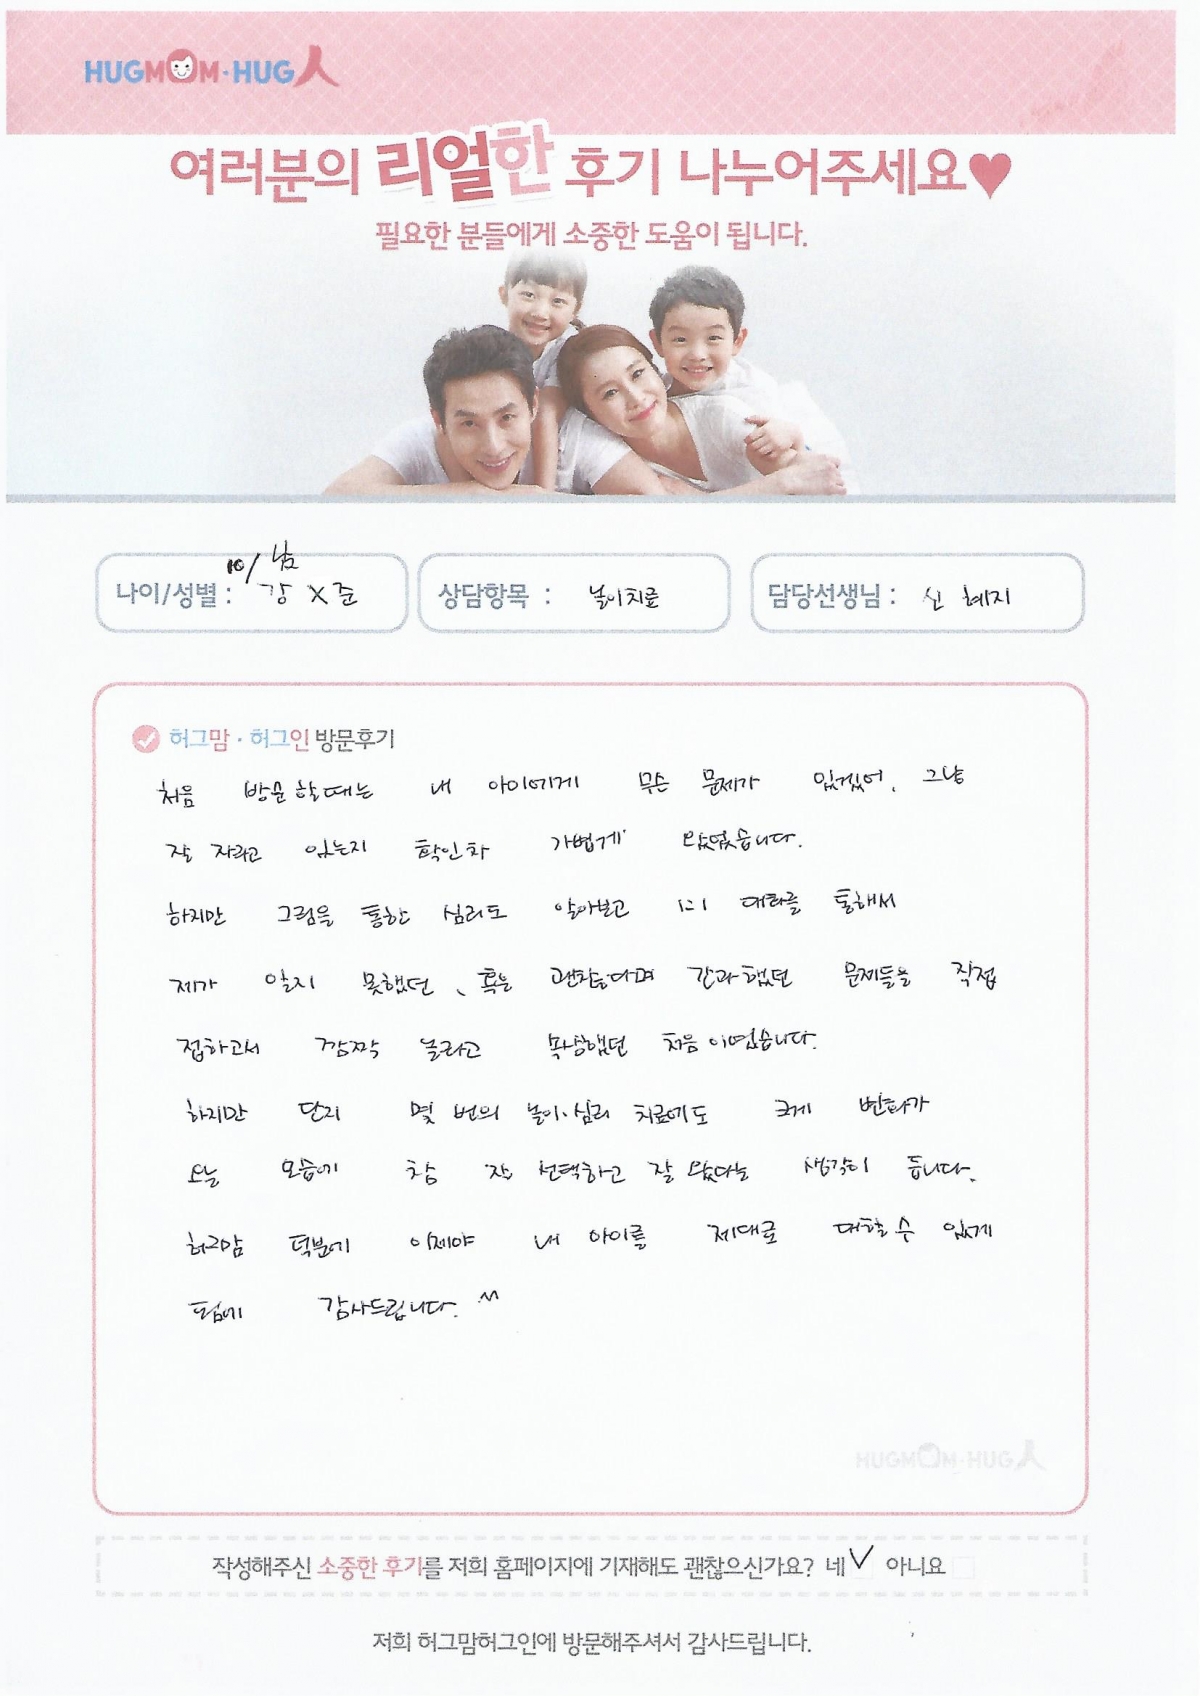 HUGMOM·HUG人
여러분의 리얼한 후기 나누어주세요♥
필요한 분들에게 소중한 도움이 됩니다.
10/남
나이/성별 : 강X준
상담항목 : 놀이치료
담당선생님 : 신혜지
허그맘·허그인 방문후기
처음 방문할때는 내 아이에게 무슨 문제가 있겠어, 그냥
잘 자라고 있는지 확인차 가볍게 왔었습니다.
하지만 그림을 통한 심리도 알아보고 1:1 대화를 통해서
제가 알지 못했던, 혹은 괜찮다며 간과했던 문제들을 직접
접하고서 깜짝 놀라고 속상했던 처음이었습니다.
하지만 단지 몇 번의 놀이·심리 치료에도 크게 변화가
오는 모습에 참 잘 선택하고 잘 왔다는 생각이 듭니다.
허그맘 덕분에 이제야 내 아이를 제대로 대할수 있게
됨에 감사드립니다. ^^
HUGMOM·HUG人
작성해주신 소중한 후기를 저희 홈페이지에 기재해도 괜찮으신가요? 네 ✓ 아니요
저희 허그맘허그인에 방문해주셔서 감사드립니다.